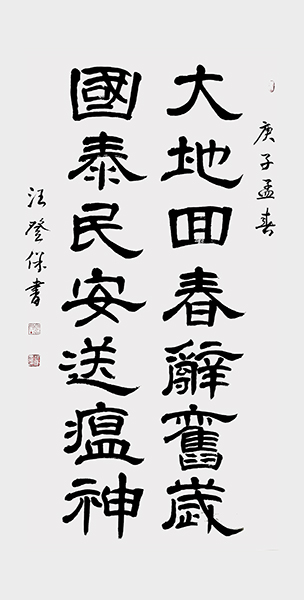 庚子孟春
大地回春辭舊歲
國泰民安送瘟神
汪登保書